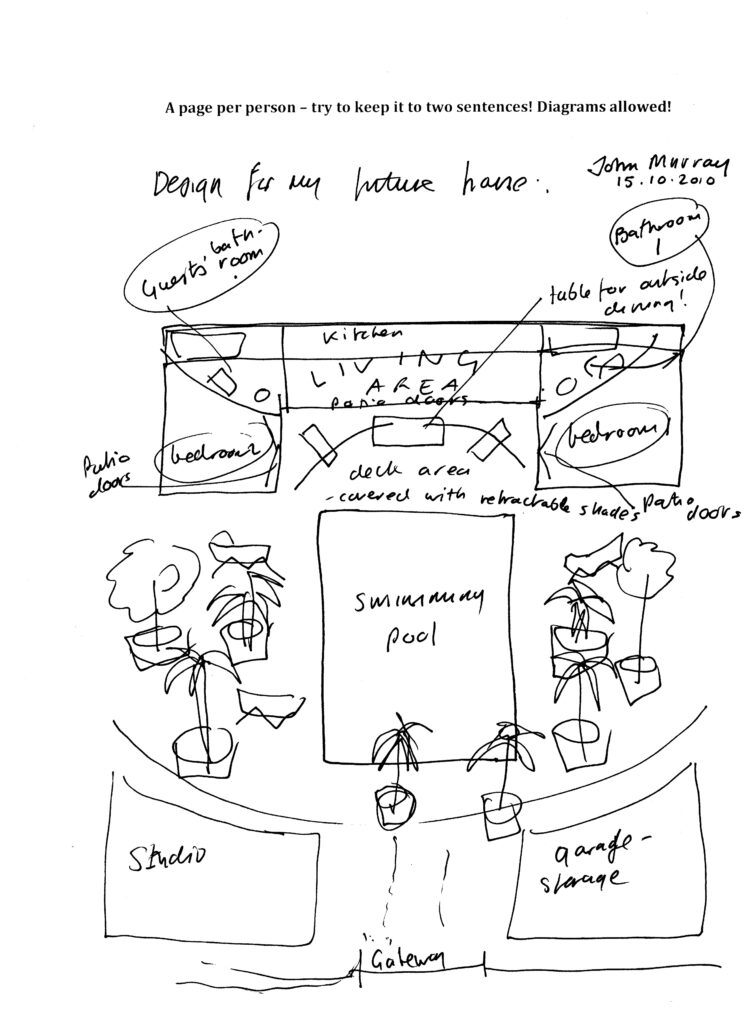 A page per person – try to keep it to two sentences! Diagrams allowed!
Design for my future house.
John Murray
15.10.2010
Guests' bath-
room
Bathroom
1
table for outside
dining!
Kitchen
LIVING
AREA
Patio doors
bedroom2
bedroom1
Patio
doors
deck area
-covered with retractable shades
Patio
doors
Swimming
pool
Studio
garage-
storage
Gateway